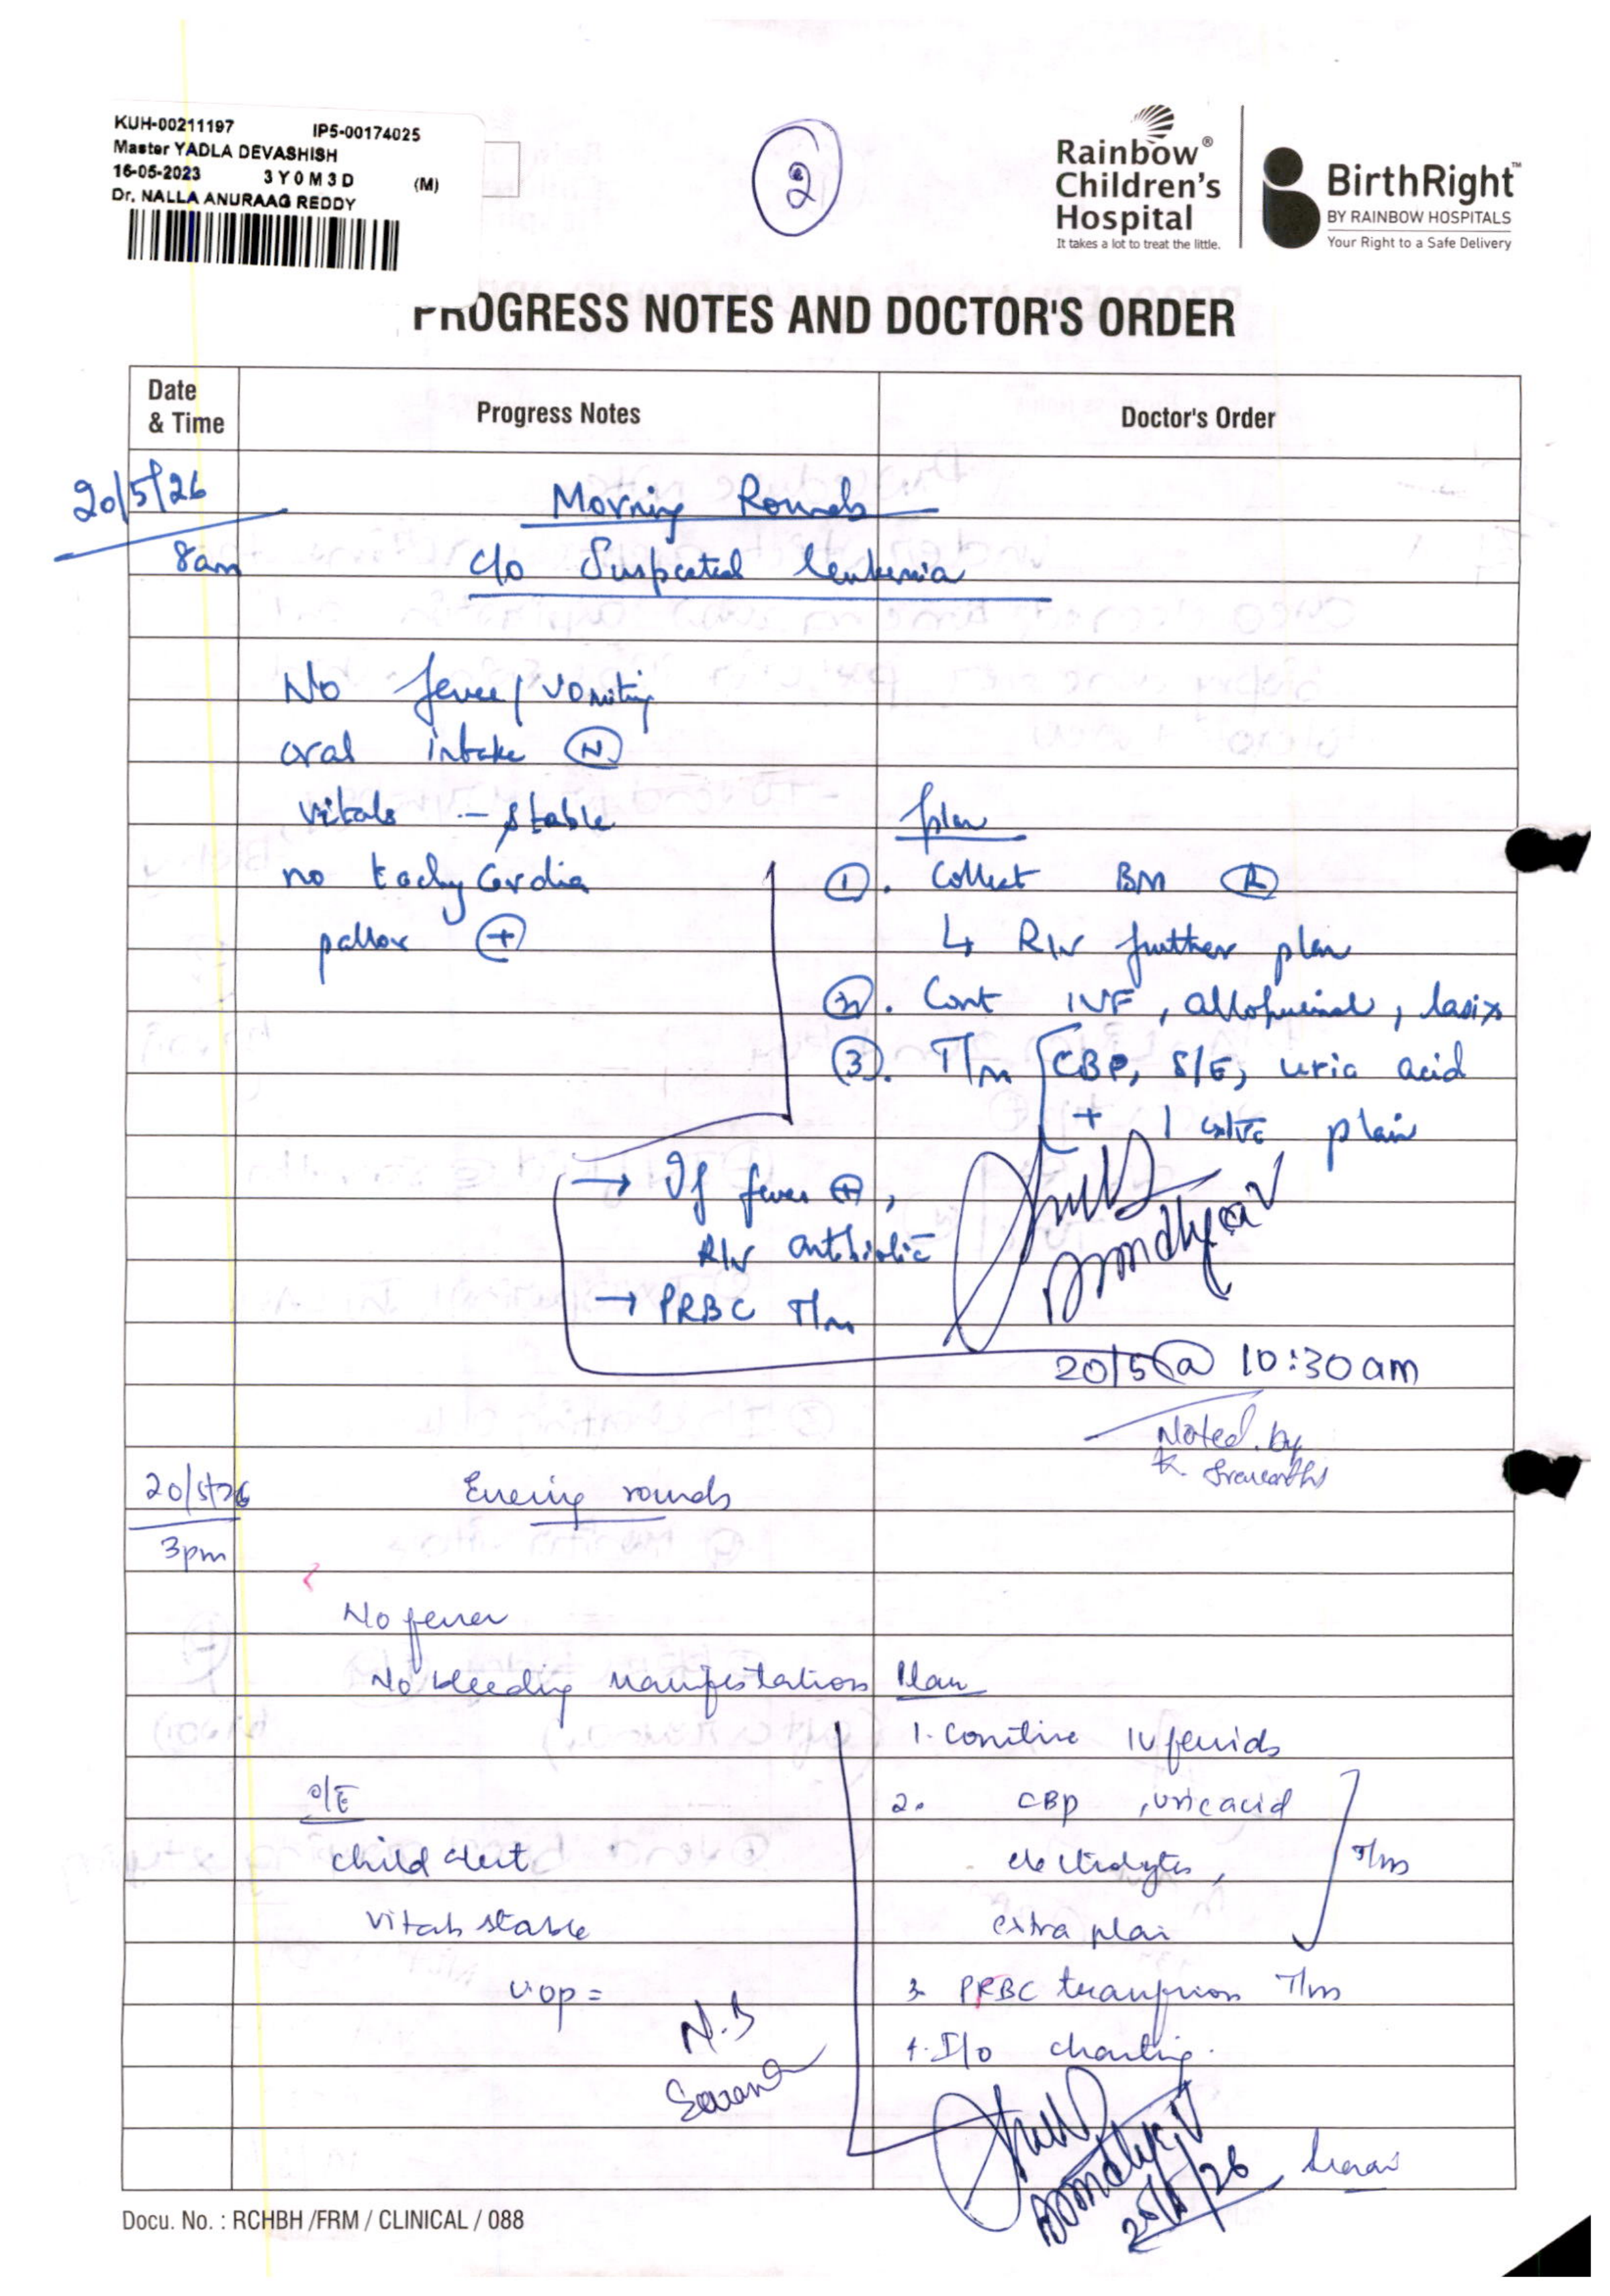 KUH-00211197 IP5-00174025
Master YADLA DEVASHISH
16-05-2023 3Y0M3D (M)
Dr. NALLA ANURAAG REDDY
2
Rainbow®
Children's
Hospital
It takes a lot to treat the little.
BirthRight™
BY RAINBOW HOSPITALS
Your Right to a Safe Delivery
PROGRESS NOTES AND DOCTOR'S ORDER
Date & Time
Progress Notes
Doctor's Order
20/5/26
8am
Morning Rounds
c/o Suspected leukemia
No fever / vomiting
oral intake (N)
vitals - stable
no tachycardia
pallor (+)
plan
(1). Collect BM (R)
↳ R/v further plan
(2). Cont IVF, allopurinol, lasix
(3). T/m [CBP, S/E, uric acid
+ 1 extra plain
→ If fever (+),
R/v antibiotic
→ PRBC T/m
20/5 @ 10:30am
Noted by
K.
20/5/26
3pm
Evening rounds
No fever
No bleeding manifestation
Plan
1. Continue IV fluids
2. CBP, uric acid
electrolytes,
extra plain
T/m
3. PRBC transfusion T/m
4. I/o charting.
O/E
child alert
vitals stable
uop =
N.B
Docu. No. : RCHBH /FRM / CLINICAL / 088